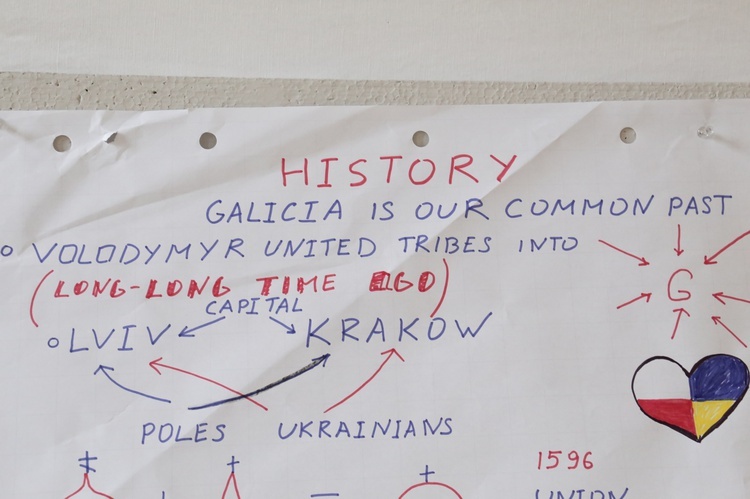 HISTORY
GALICIA IS OUR COMMON PAST
VOLODYMYR UNITED TRIBES INTO
G
(LONG-LONG TIME AGO)
CAPITAL
LVIV KRAKOW
POLES UKRAINIANS
1596
UNION